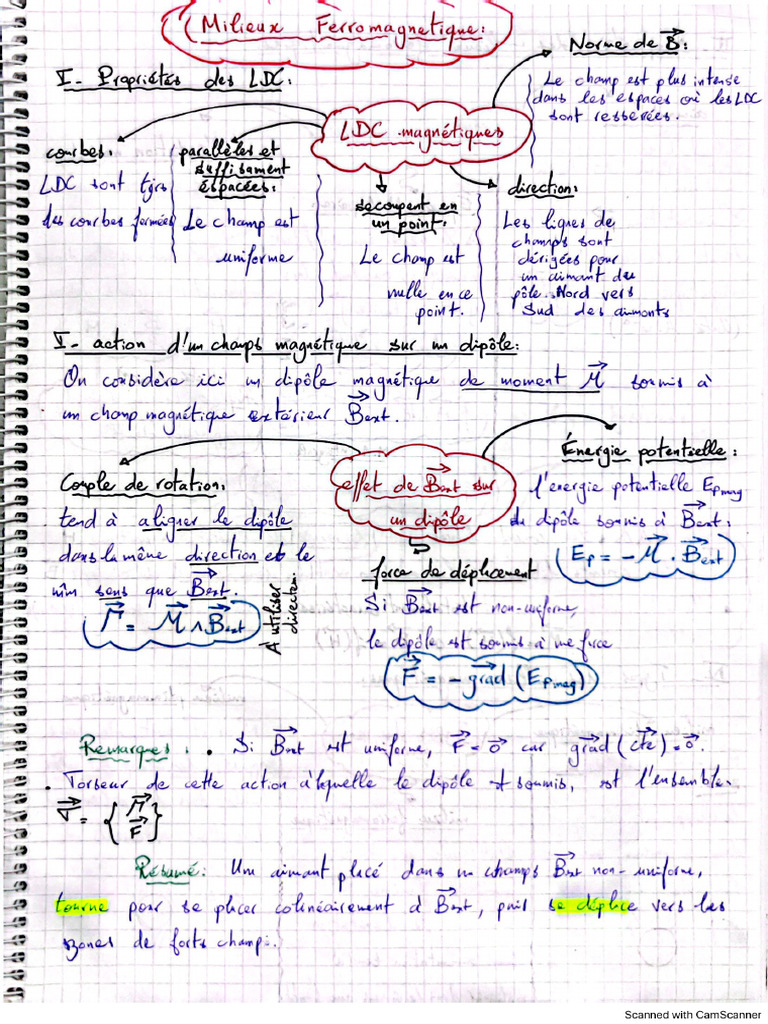 Milieux Ferromagnetique:
I- Propriétés des LDC:
Norme de B:
Le champ est plus intense
dans les espaces où les LDC
sont resserées.
LDC magnétiques
courbes:
LDC sont tjrs
des courbes fermées
parallèles et
suffisament
espacées:
Le champ est
uniforme
secoupent en
un point:
Le champ est
nulle en ce
point.
direction:
Les lignes de
champs sont
dérigées pour
un aimant du
pôle Nord vers
Sud des aimants
V- action d'un champs magnétique sur un dipôle:
On considère ici un dipôle magnétique de moment M soumis à
un champ magnétique extérieur Bext.
effet de Bext sur
un dipôle
Couple de rotation:
tend à aligner le dipôle
dans la même direction et le
mm sens que Bext.
Γ = M ∧ Bext
À utiliser
directem
force de déplcement
Si Bext est non-uniforme,
le dipôle est soumis à une force
F = - grad (Epmag)
Énergie potentielle:
l'énergie potentielle Epmag
du dipôle soumis à Bext:
Ep = - M . Bext
Remarques: • Si Bext est uniforme, F = 0 car grad (cte) = 0.
• Torseur de cette action à laquelle le dipôle soumis, est l'ensemble.
= { Γ
F }
Résumé: Un aimant placé dans un champs Bext non-uniforme,
tourne pour se placer colinéairement à Bext, puis se déplace vers les
zones de forts champs.
Scanned with CamScanner